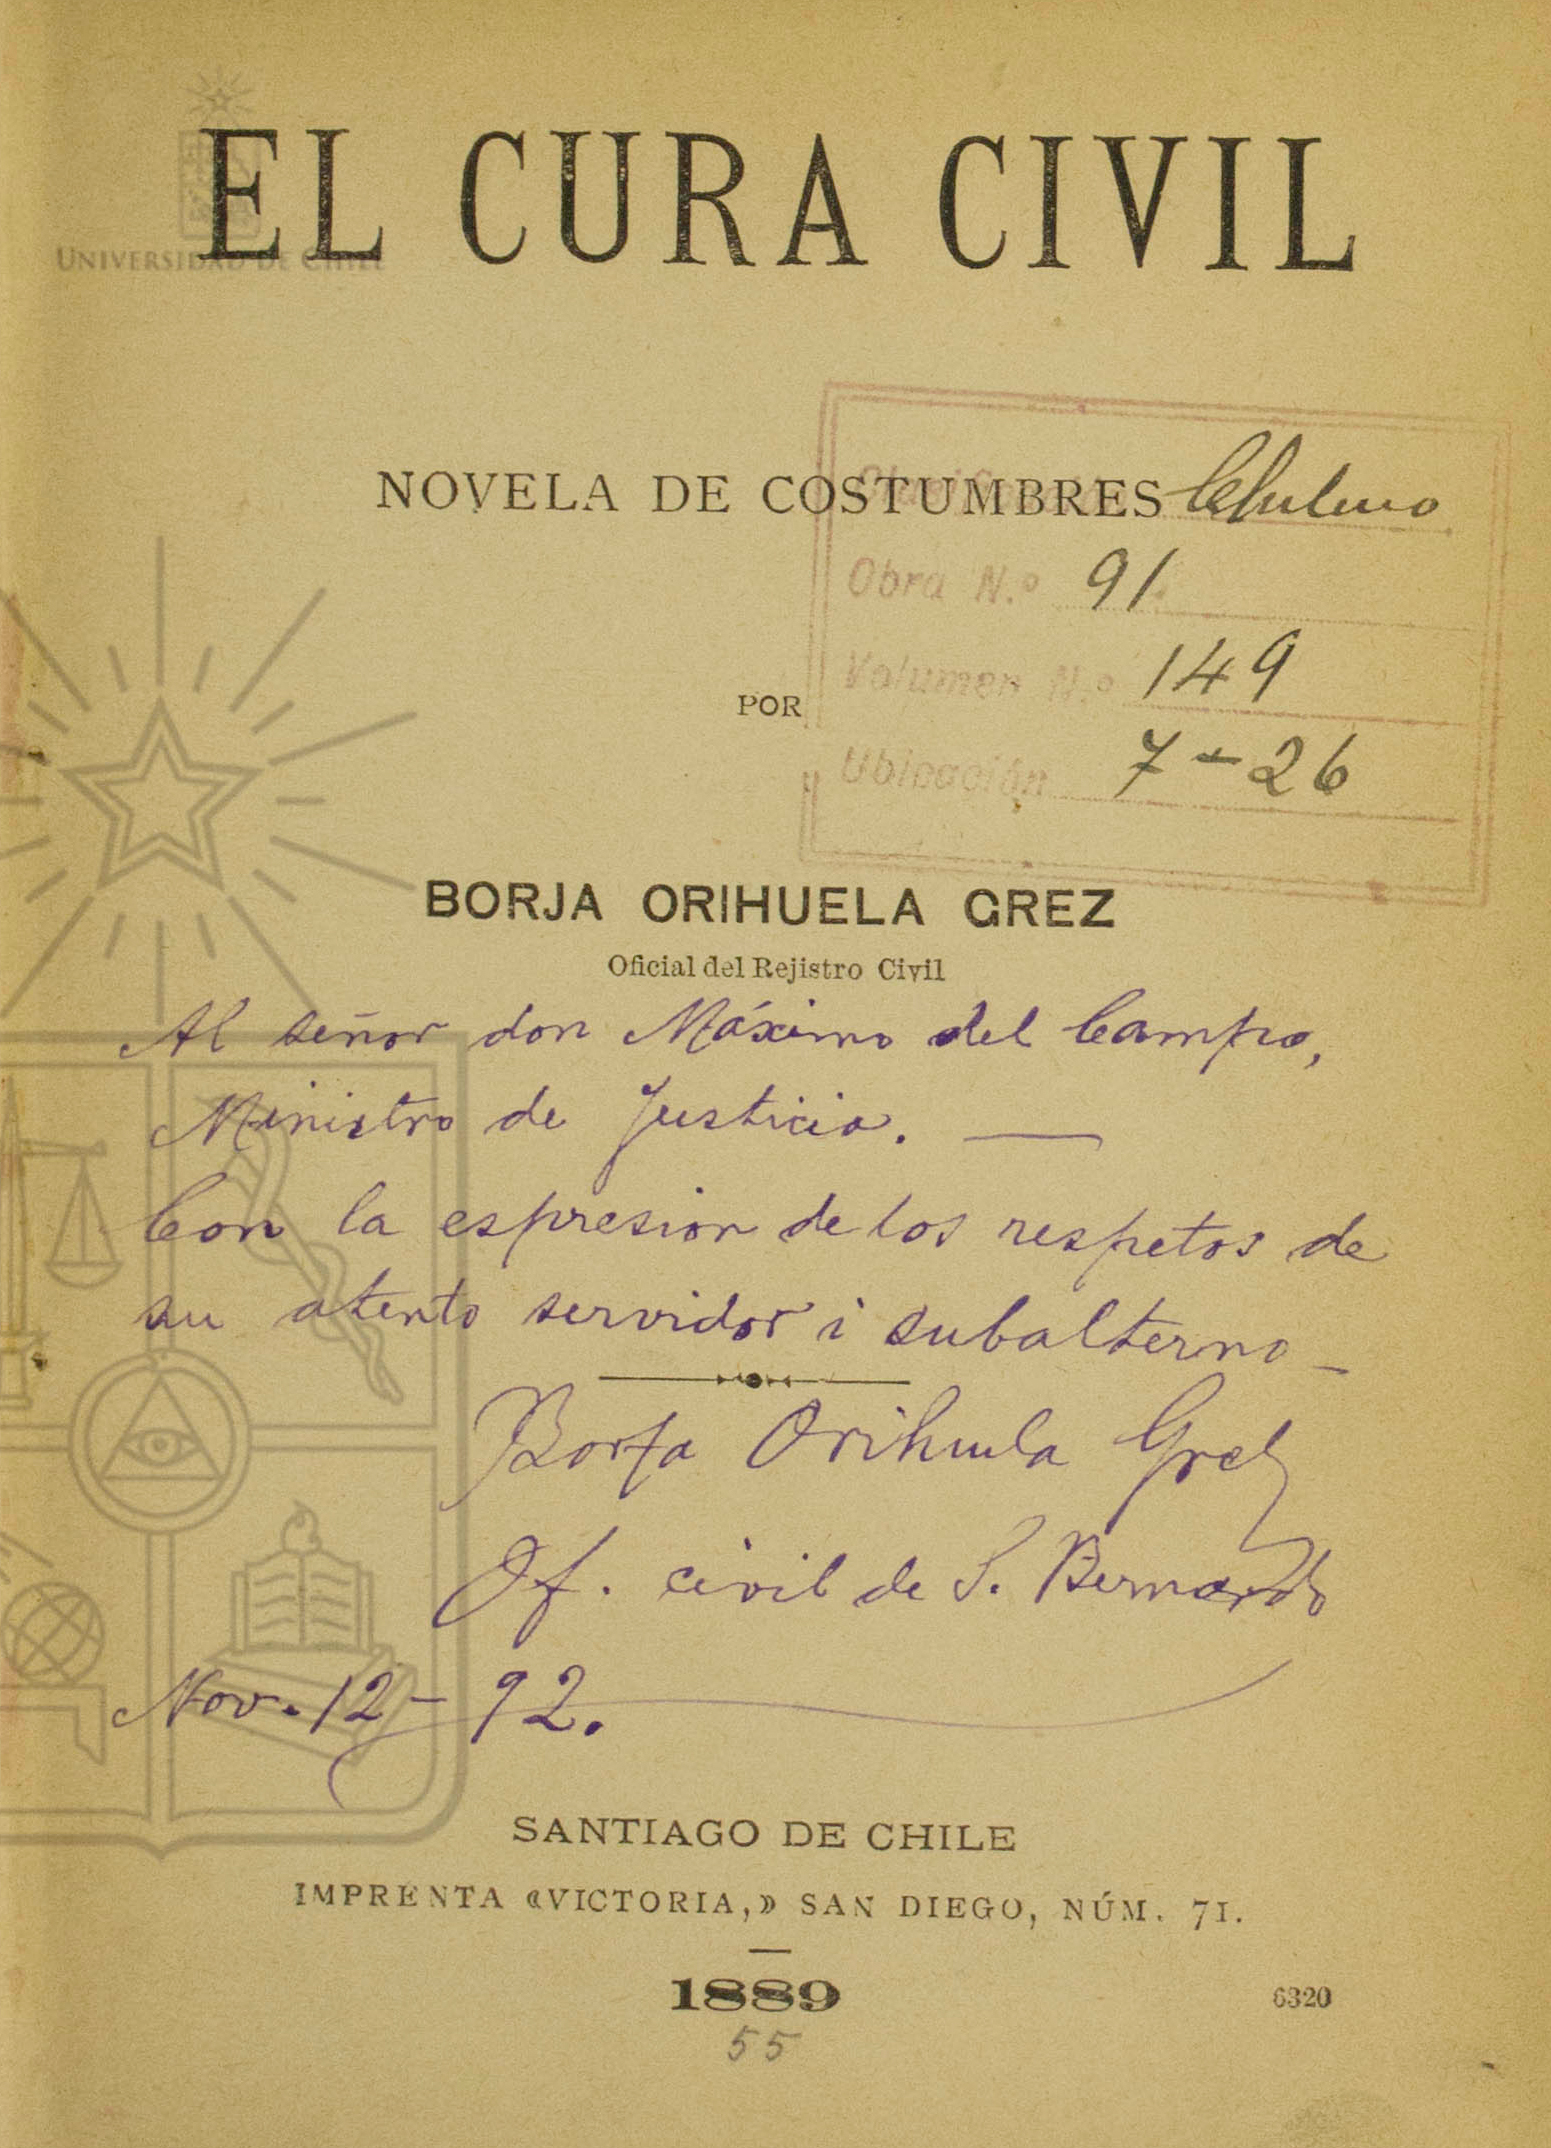 UNIVERSIDAD DE CHILE
EL CURA CIVIL
NOVELA DE COSTUMBRES
Chileno
Obra N.º 91
Volumen N.º 149
Ubicación 7-26
POR
BORJA ORIHUELA GREZ
Oficial del Rejistro Civil
Al señor don Máximo del Campo,
Ministro de Justicia. —
Con la espresion de los respetos de
su atento servidor i subalterno —
Borja Orihuela Grez
Of. civil de S. Bernardo
Nov. 12 - 92.
SANTIAGO DE CHILE
IMPRENTA «VICTORIA,» SAN DIEGO, NÚM. 71.
1889
6320
55